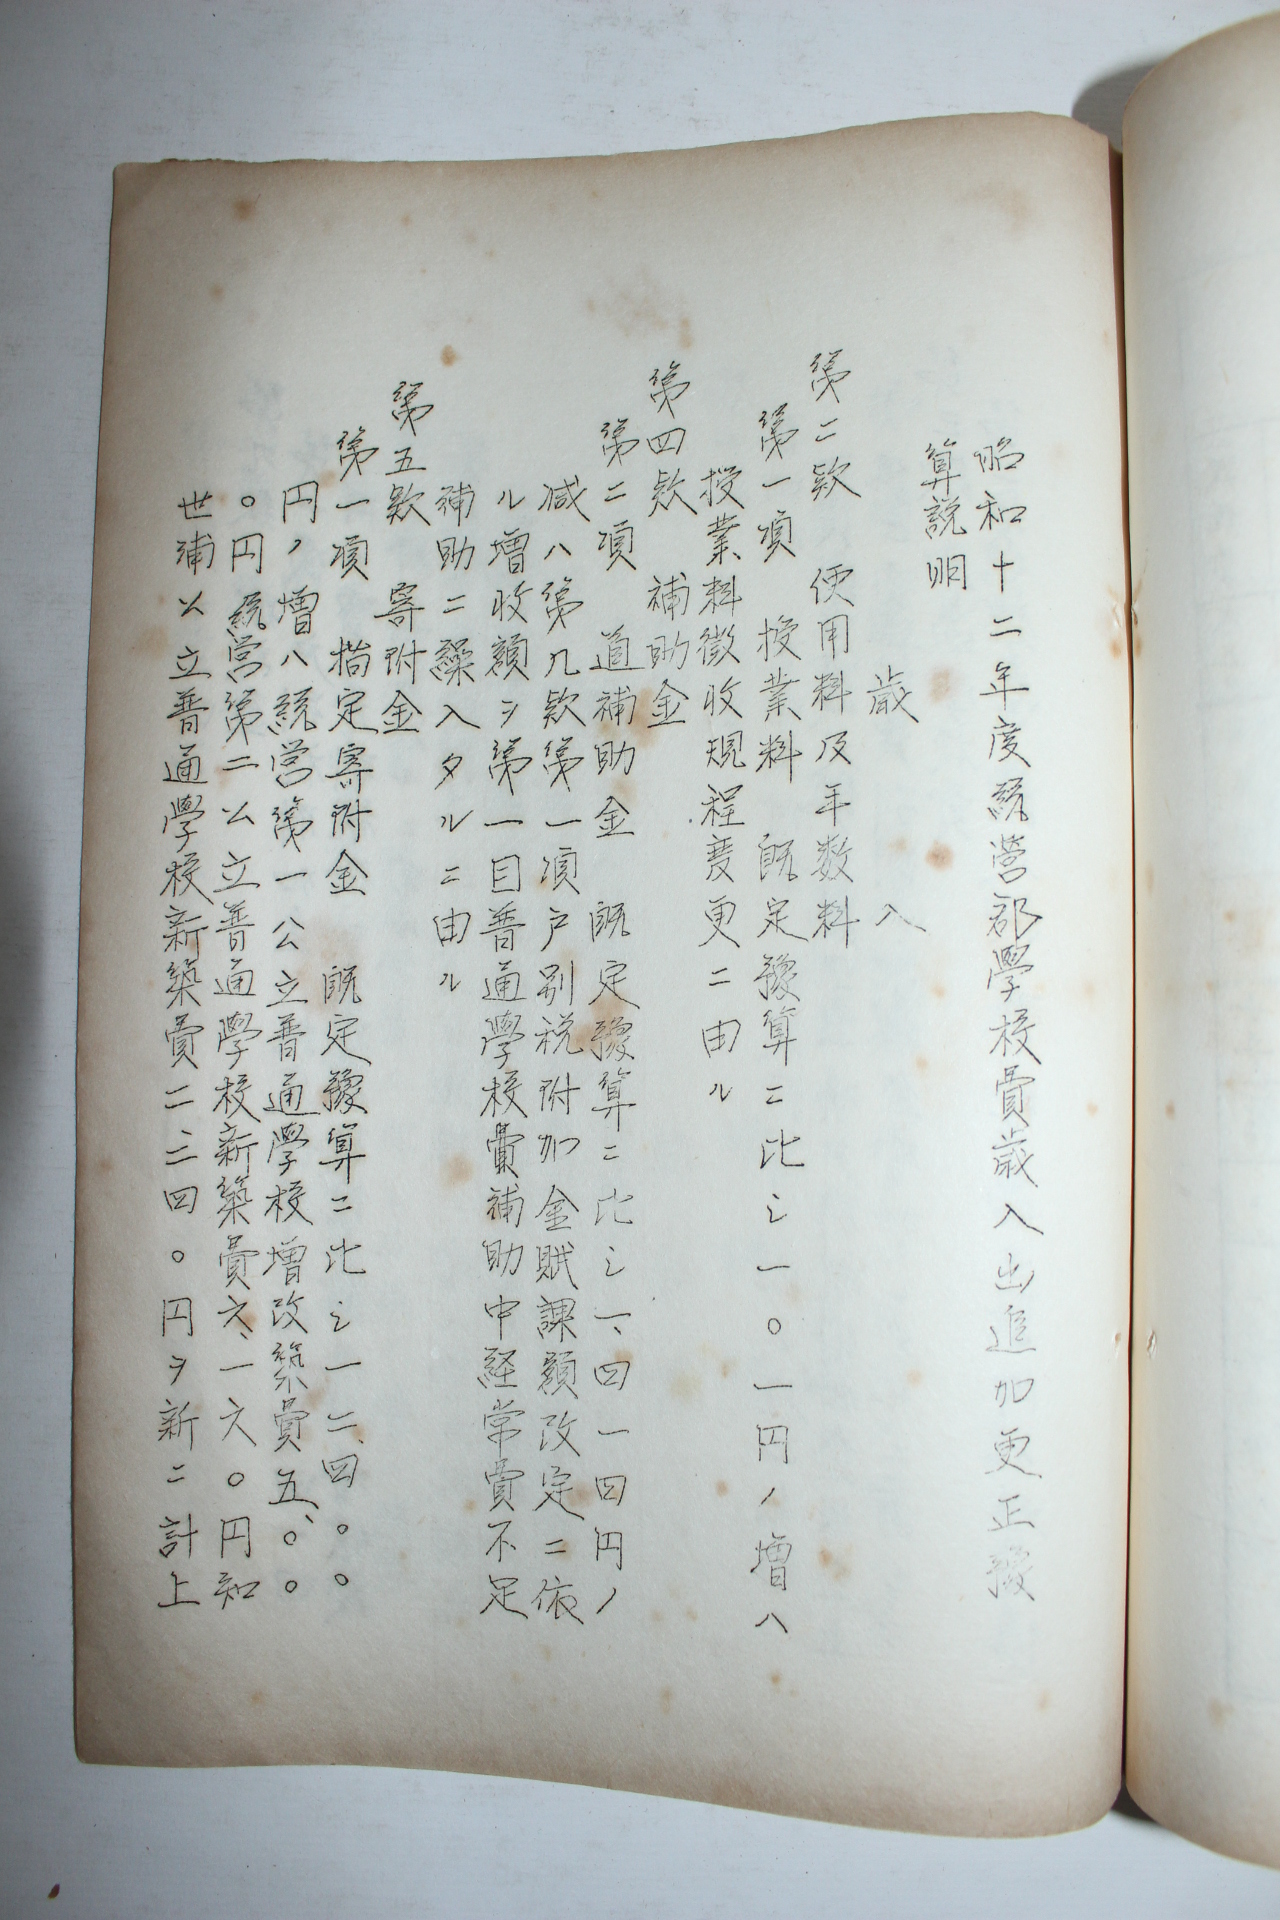 昭和十二年度統営郡學校費歳入出追加更正豫
算説明
歳入
第二款 使用料及手数料
第一項 授業料 既定豫算ニ比シ一〇一円ノ増ハ
授業料徴收規程変更ニ由ル
第四款 補助金
第二項 道補助金 既定豫算ニ比シ一、四一四円ノ
减ハ第九款第一項戸別税附加金賦課額改定ニ依
ル増收額ヲ第一目普通學校費補助中経常費不足
補助ニ繰入タルニ由ル
第五款 寄附金
第一項 指定寄附金 既定豫算ニ比シ一二、四〇〇
円ノ増ハ統営第一公立普通學校増改築費五、〇〇
〇円統営第二公立普通學校新築費六、一六〇円知
世浦公立普通學校新築費二、二四〇円ヲ新ニ計上